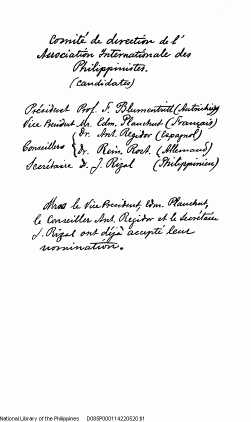 Comité de direction de l'
Association Internationale des
Philippinistes.
(candidates)
Président Prof. F. Blumentritt (Autrichien)
Vice Président Mr. Edm. Planchut (Français)
Conseillers { Dr. Ant. Regidor (Espagnol)
Dr. Rein. Rost. (Allemand)
Secrétaire Dr. J. Rizal (Philippinien)
le Vice President, Edm. Planchut,
le Conseiller Ant. Regidor et le Secrétaire
J. Rizal ont déjà accepté leur
nomination.
National Library of the Philippines D085P000114220520.tif